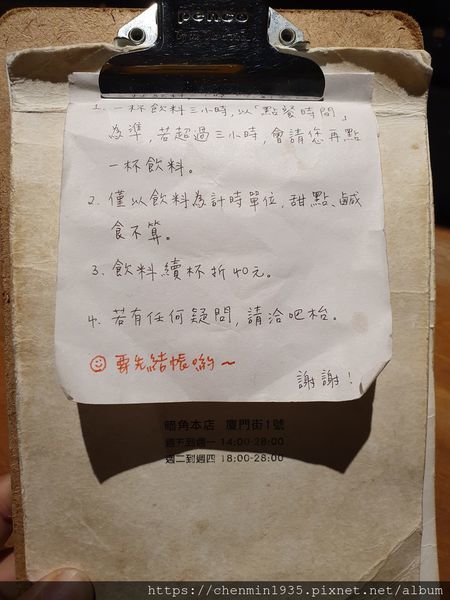 penco
1. 一杯飲料三小時，以「點餐時間」
為準，若超過三小時，會請您再點
一杯飲料。
2. 僅以飲料為計時單位，甜點、鹹
食不算。
3. 飲料續杯折40元。
4. 若有任何疑問，請洽吧枱。
要先結帳喲～
謝謝！
暗角本店 廈門街1號
週五到週一 14:00-28:00
週二到週四 18:00-28:00
https://chenmin1935.pixnet.net/album